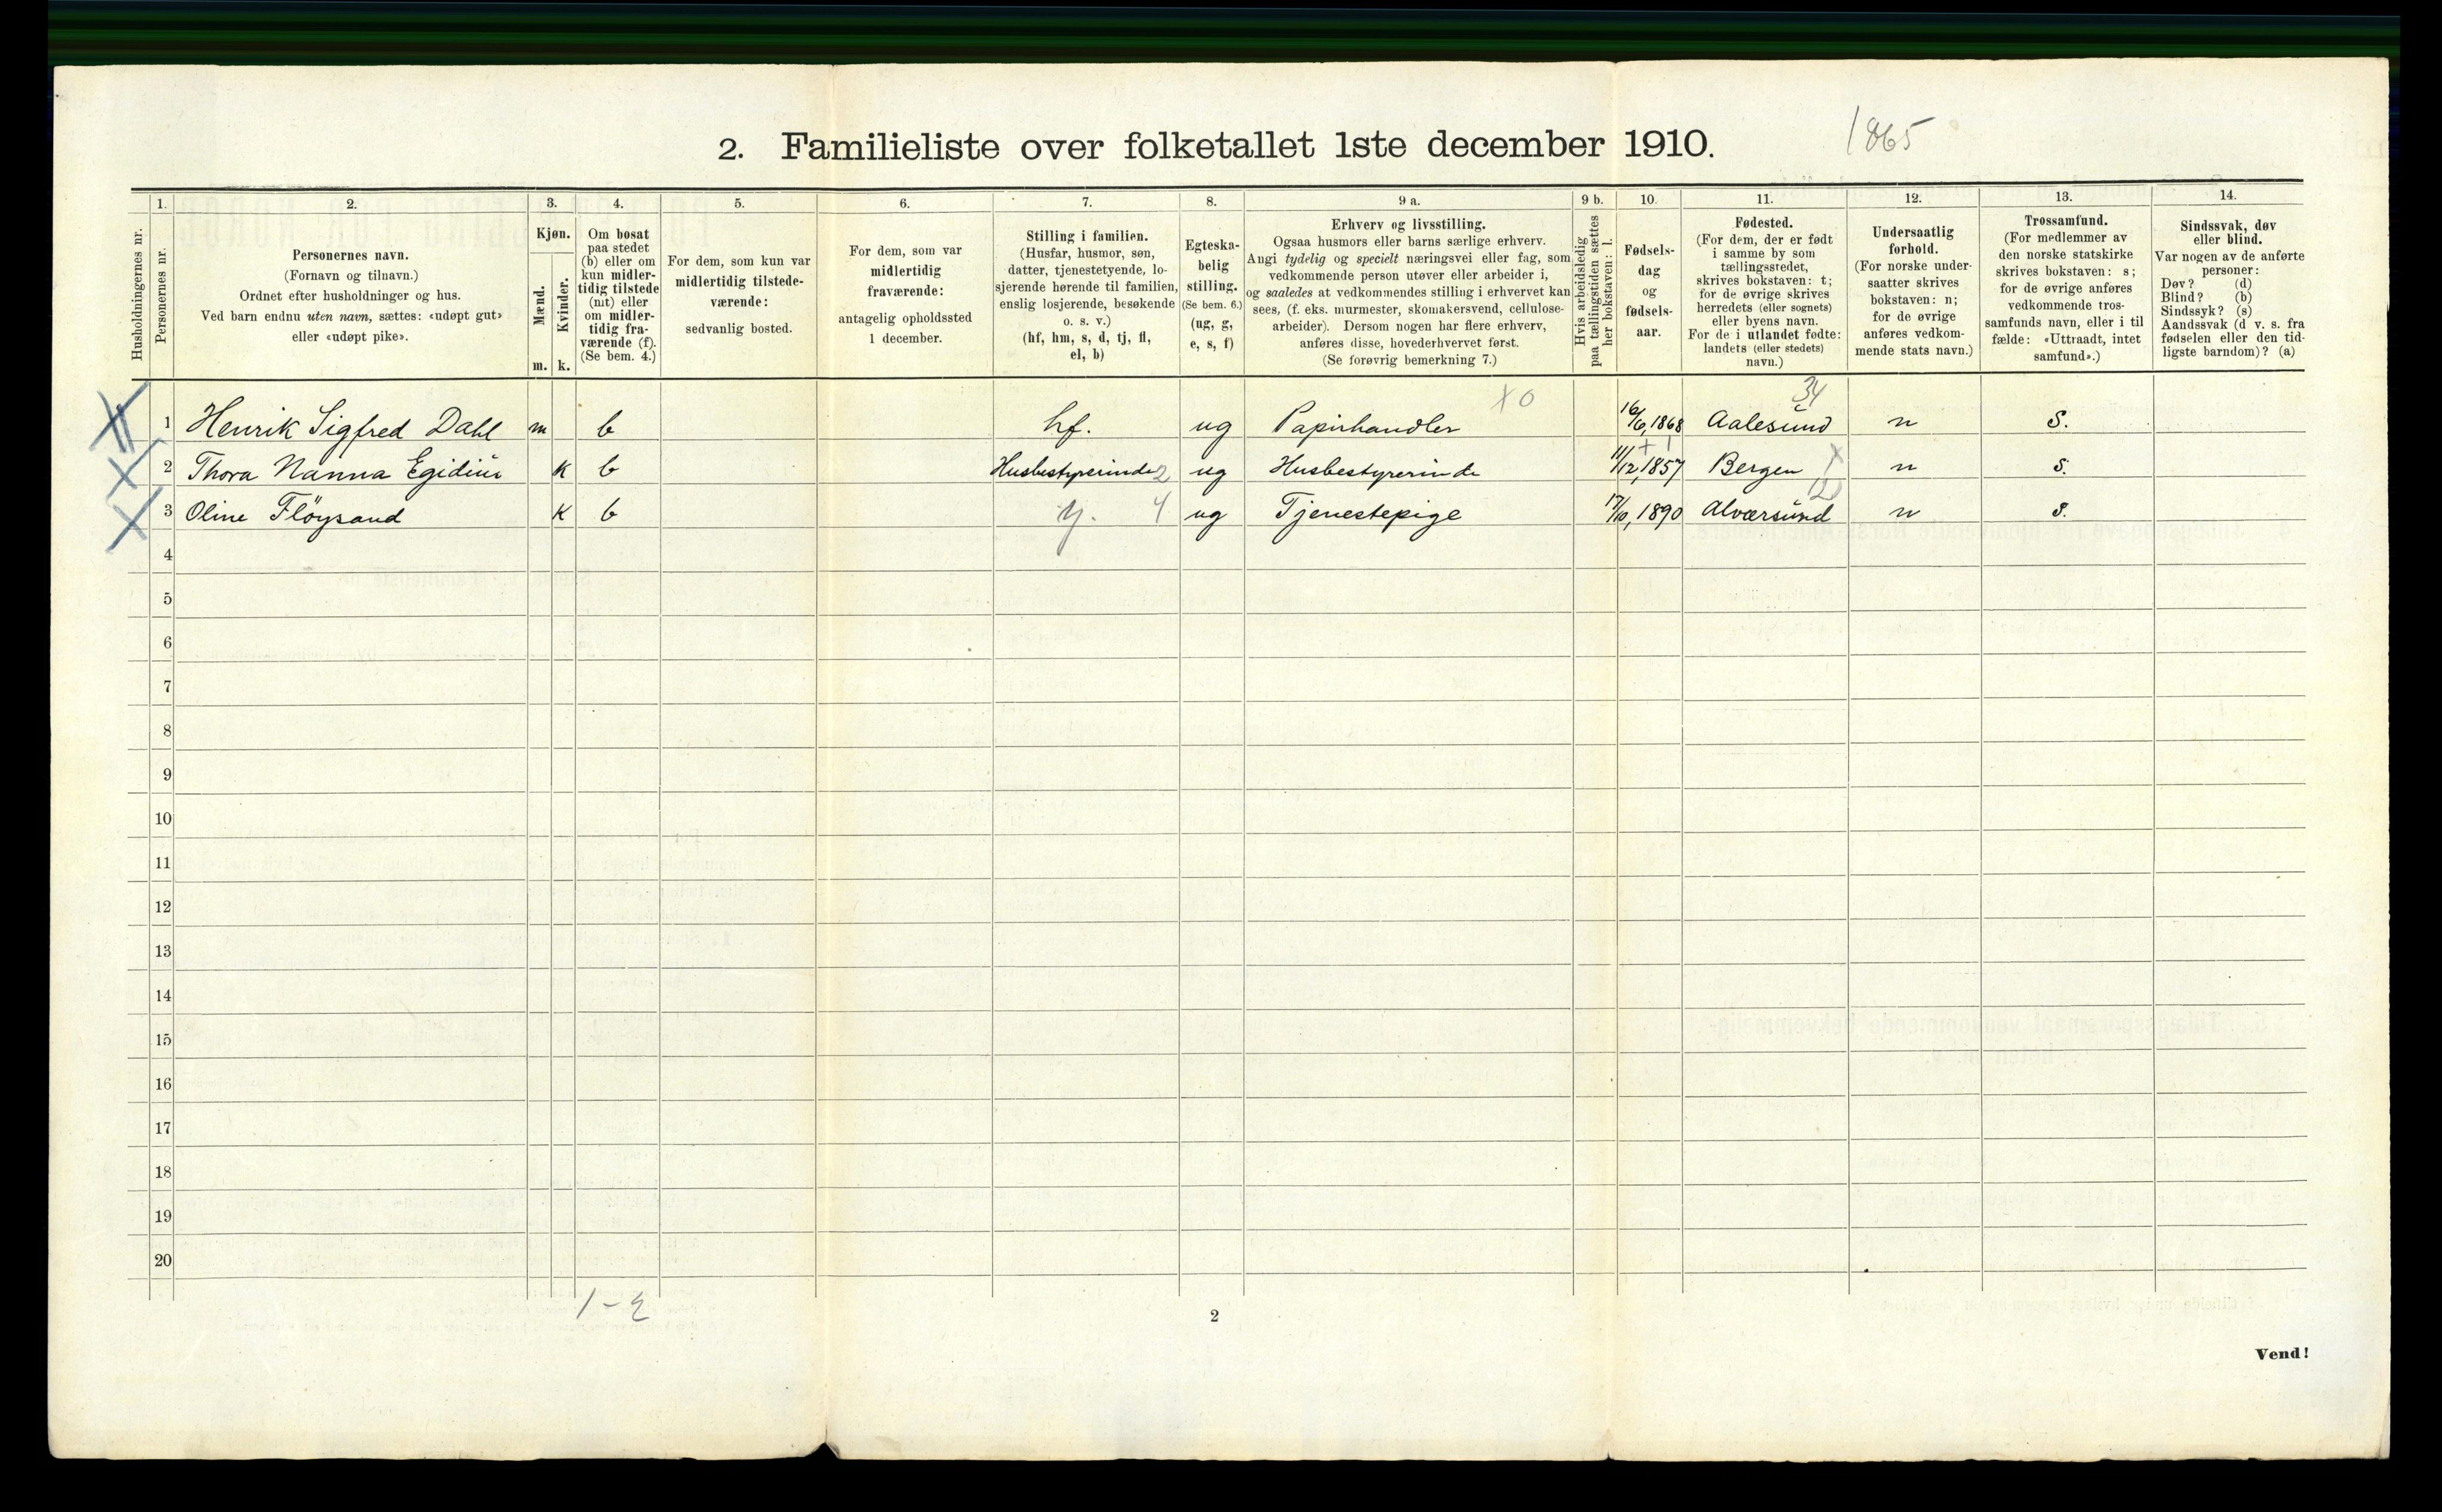 2. Familieliste over folketallet 1ste december 1910. 1865
Husholdningernes nr.
1. Personernes nr.
2. Personernes navn. (Fornavn og tilnavn.) Ordnet efter husholdninger og hus. Ved barn endnu uten navn, sættes: «udøpt gut» eller «udøpt pike».
3. Kjøn. Mænd. m. Kvinder. k.
4. Om bosat paa stedet (b) eller om kun midlertidig tilstede (mt) eller om midlertidig fraværende (f). (Se bem. 4.)
5. For dem, som kun var midlertidig tilstedeværende: sedvanlig bosted.
6. For dem, som var midlertidig fraværende: antagelig opholdssted 1 december.
7. Stilling i familien. (Husfar, husmor, søn, datter, tjenestetyende, losjerende hørende til familien, enslig losjerende, besøkende o. s. v.) (hf, hm, s, d, tj, fl, el, b)
8. Egteskabelig stilling. (Se bem. 6.) (ug, g, e, s, f)
9 a. Erhverv og livsstilling. Ogsaa husmors eller barns særlige erhverv. Angi tydelig og specielt næringsvei eller fag, som vedkommende person utøver eller arbeider i, og saaledes at vedkommendes stilling i erhvervet kan sees, (f. eks. murmester, skomakersvend, cellulosearbeider). Dersom nogen har flere erhverv, anføres disse, hovederhvervet først. (Se forøvrig bemerkning 7.)
9 b. Hvis arbeidsledig paa tællingstiden sættes her bokstaven: l.
10. Fødselsdag og fødselsaar.
11. Fødested. (For dem, der er født i samme by som tællingsstedet, skrives bokstaven: t; for de øvrige skrives herredets (eller sognets) eller byens navn. For de i utlandet fødte: landets (eller stedets) navn.)
12. Undersaatlig forhold. (For norske undersaatter skrives bokstaven: n; for de øvrige anføres vedkommende stats navn.)
13. Trossamfund. (For medlemmer av den norske statskirke skrives bokstaven: s; for de øvrige anføres vedkommende trossamfunds navn, eller i tilfælde: «Uttraadt, intet samfund».)
14. Sindssvak, døv eller blind. Var nogen av de anførte personer: Døv? (d) Blind? (b) Sindssyk? (s) Aandssvak (d v. s. fra fødselen eller den tidligste barndom)? (a)
X 0 34
1 Henrik Sigfred Dahl m b hf. ug Papirhandler 16/6, 1868 Aalesund n S.
2 Thora Nanna Egidius K b Husbestyrerinde 2 ug Husbestyrerinde 11/12, 1857 Bergen n S.
3 Oline Fløysand K b tj. 4 ug Tjenestepige 17/10, 1890 Alværsund n S.
4
5
6
7
8
9
10
11
12
13
14
15
16
17
18
19
20
1 - 2
2
Vend!